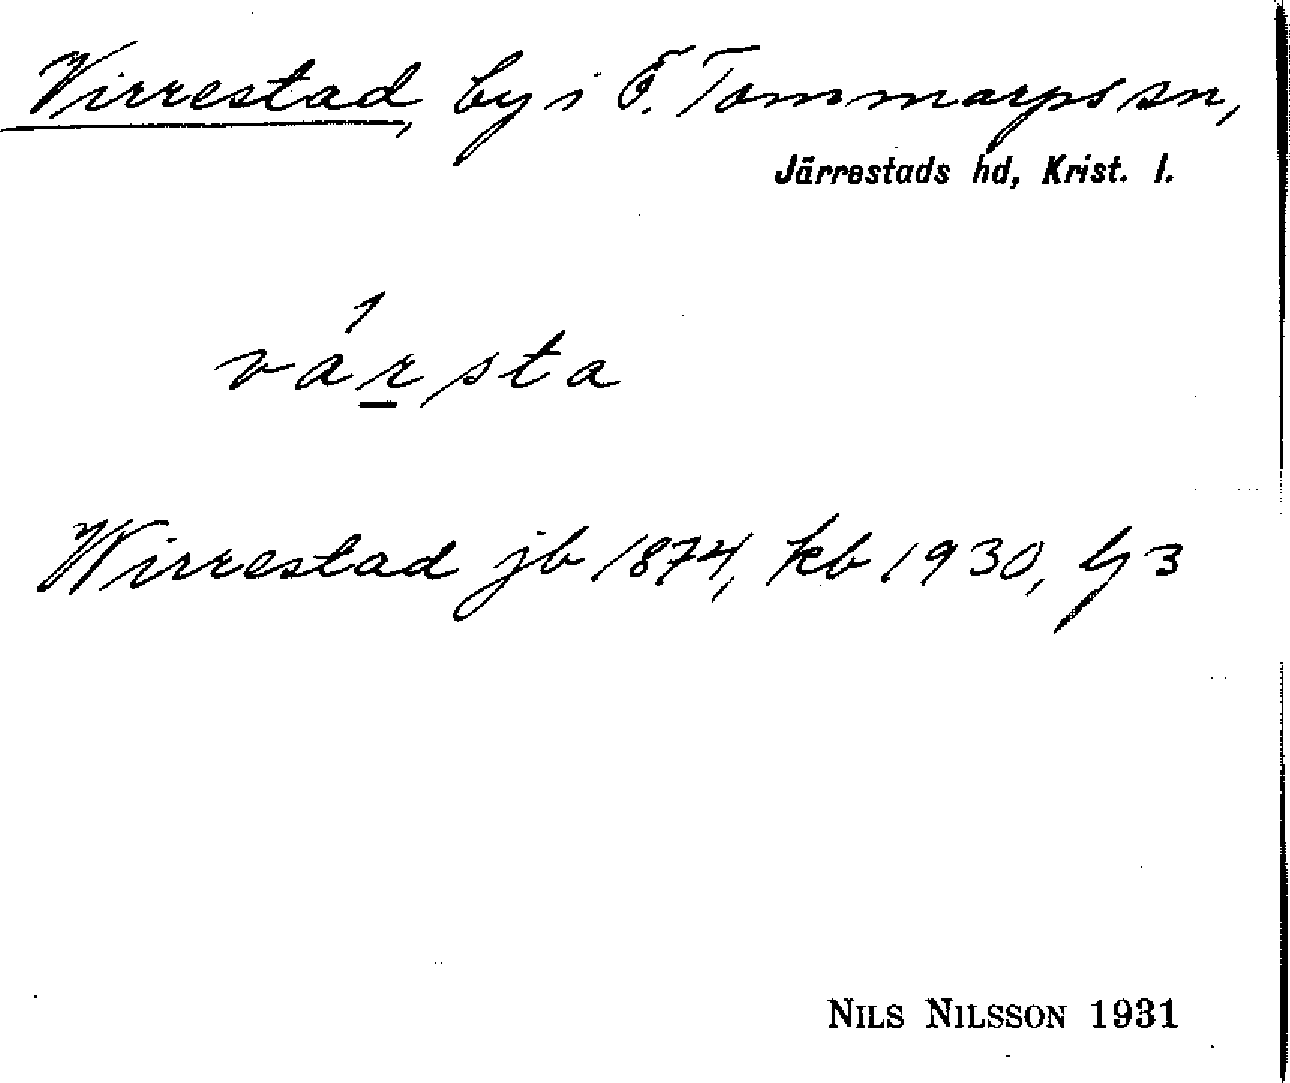 Virrestad, by i Ö. Tommarps sn,
Järrestads hd, Krist. l.
vársta
Wirrestad jb 1874, kb 1930, G3
NILS NILSSON 1931